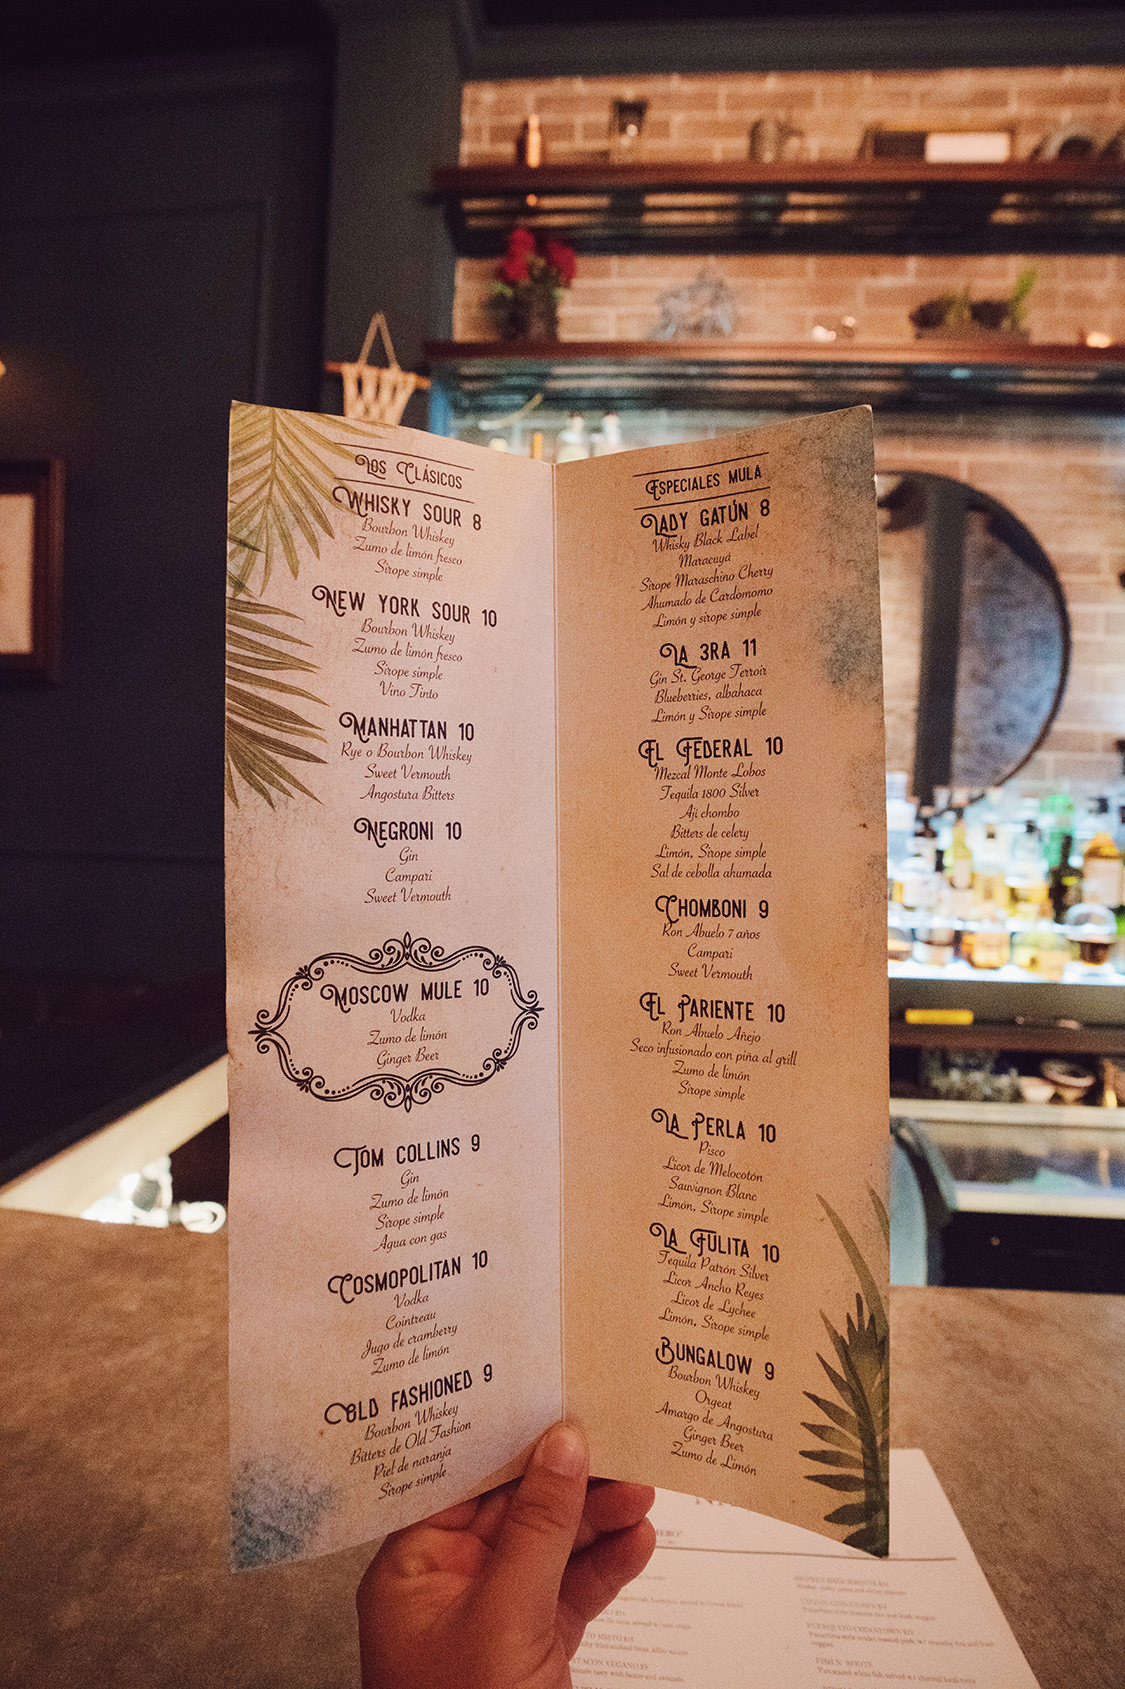 Los Clásicos
Whisky Sour 8
Bourbon Whiskey
Zumo de limón fresco
Sirope simple
New York Sour 10
Bourbon Whiskey
Zumo de limón fresco
Sirope simple
Vino Tinto
Manhattan 10
Rye o Bourbon Whiskey
Sweet Vermouth
Angostura Bitters
Negroni 10
Gin
Campari
Sweet Vermouth
Moscow Mule 10
Vodka
Zumo de limón
Ginger Beer
Tom Collins 9
Gin
Zumo de limón
Sirope simple
Agua con gas
Cosmopolitan 10
Vodka
Cointreau
Jugo de cramberry
Zumo de limón
Old Fashioned 9
Bourbon Whiskey
Bitters de Old Fashion
Piel de naranja
Sirope simple
Especiales Mula
Lady Gatún 8
Whisky Black Label
Maracuyá
Sirope Maraschino Cherry
Ahumado de Cardomomo
Limón y sirope simple
La 3ra 11
Gin St. George Terroir
Blueberries, albahaca
Limón y Sirope simple
El Federal 10
Mezcal Monte Lobos
Tequila 1800 Silver
Aji chombo
Bitters de celery
Limón, Sirope simple
Sal de cebolla ahumada
Chomboni 9
Ron Abuelo 7 años
Campari
Sweet Vermouth
El Pariente 10
Ron Abuelo Añejo
Seco infusionado con piña al grill
Zumo de limón
Sirope simple
La Perla 10
Pisco
Licor de Melocotón
Sauvignon Blanc
Limón, Sirope simple
La Fulita 10
Tequila Patrón Silver
Licor Ancho Reyes
Licor de Lychee
Limón, Sirope simple
Bungalow 9
Bourbon Whiskey
Orgeat
Amargo de Angostura
Ginger Beer
Zumo de Limón